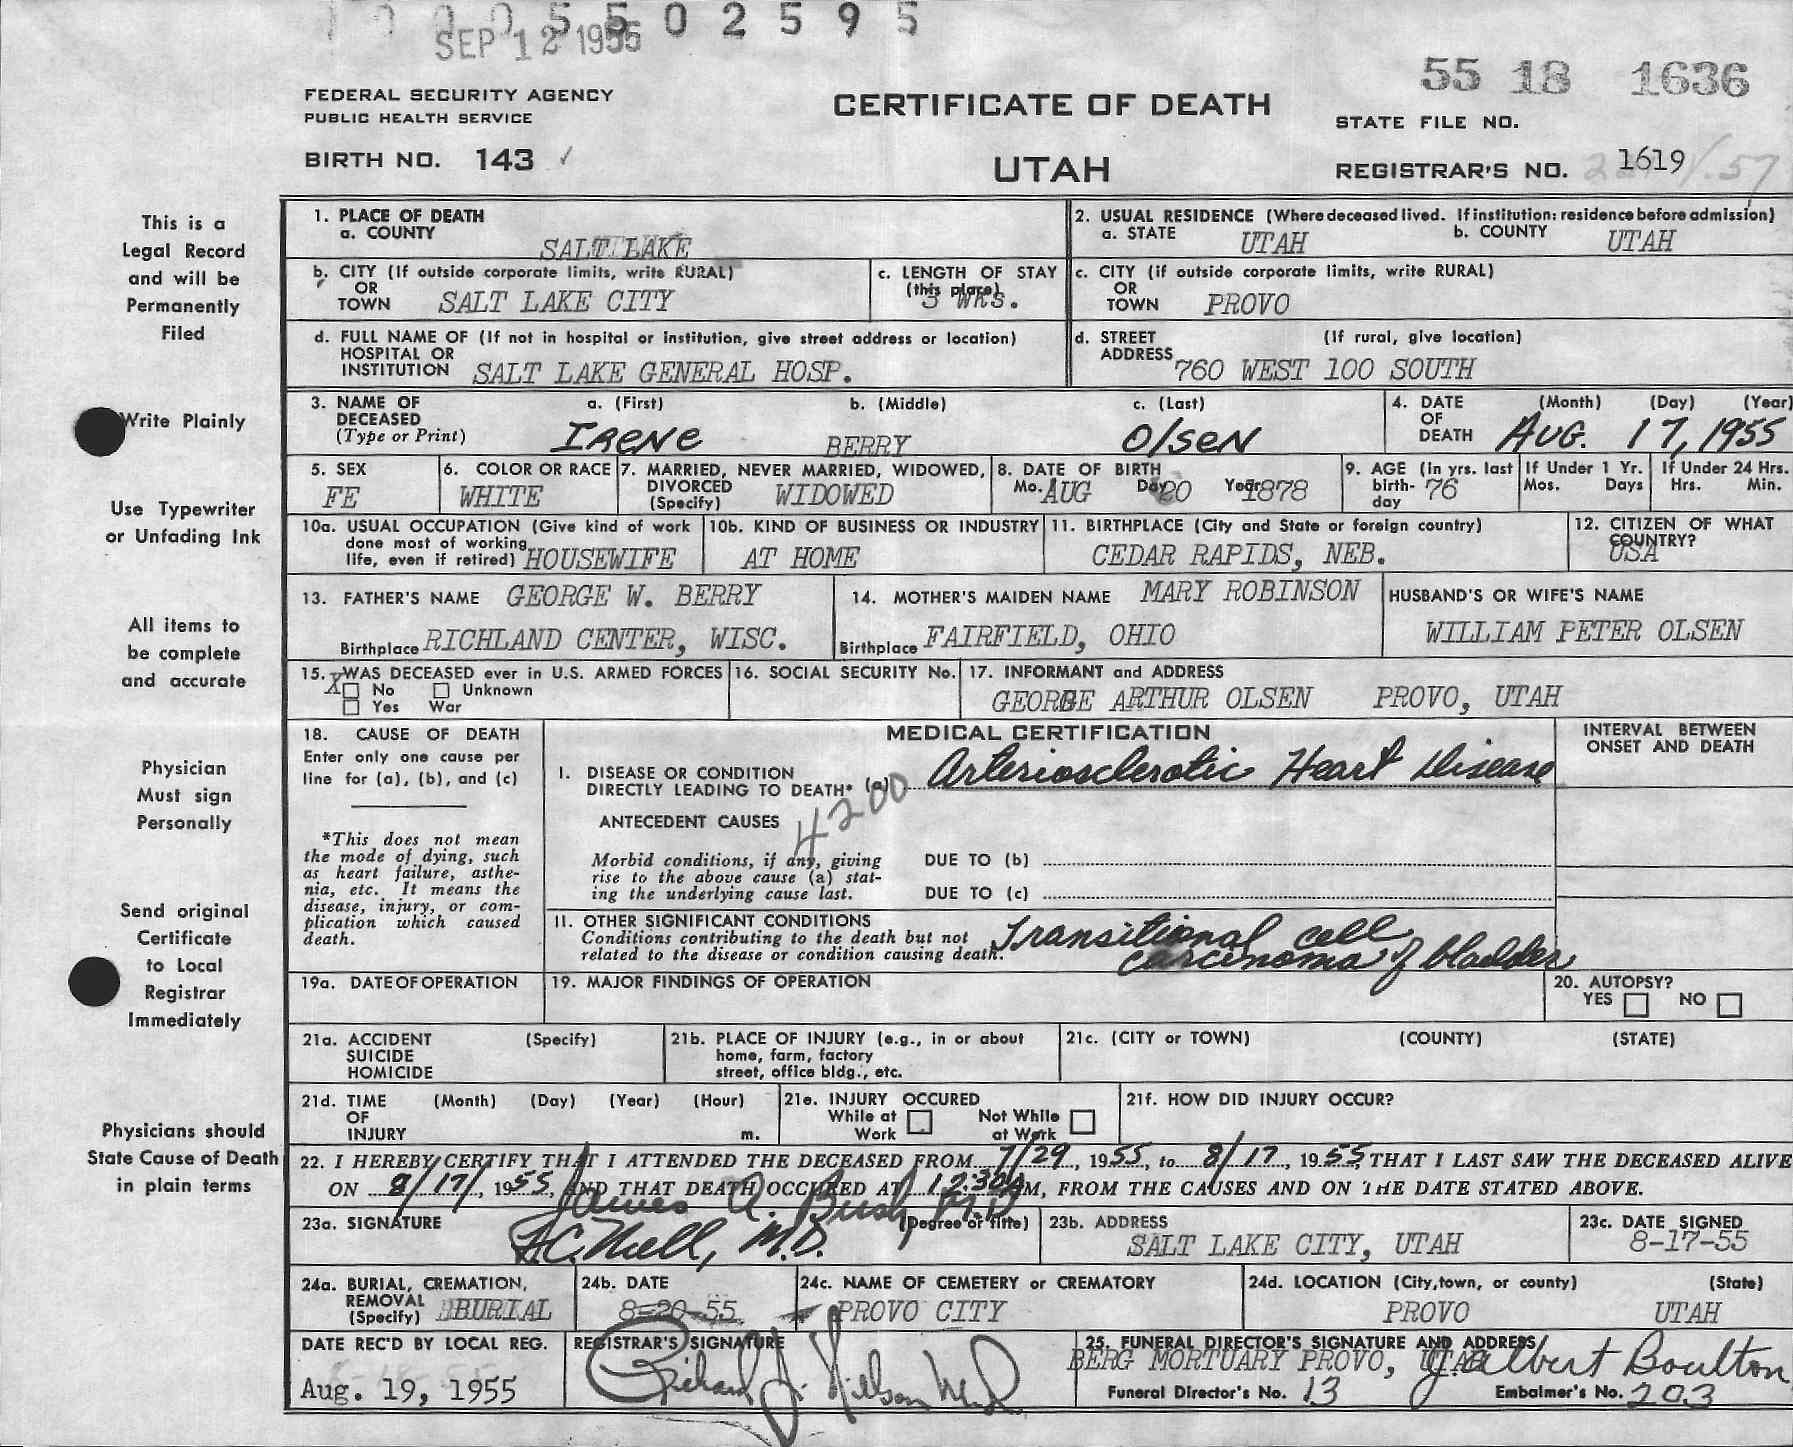 1 0 0 0 5 5 0 2 5 9 5
SEP 12 1955
55 18 1636
FEDERAL SECURITY AGENCY
PUBLIC HEALTH SERVICE
CERTIFICATE OF DEATH
STATE FILE NO.
BIRTH NO. 143 ✓
UTAH
REGISTRAR'S NO. 1619
This is a
Legal Record
and will be
Permanently
Filed
1. PLACE OF DEATH
a. COUNTY
SALT LAKE
2. USUAL RESIDENCE (Where deceased lived. If institution: residence before admission)
a. STATE UTAH b. COUNTY UTAH
b. CITY (If outside corporate limits, write RURAL)
OR
TOWN SALT LAKE CITY
c. LENGTH OF STAY
(this place)
3 WKS.
c. CITY (if outside corporate limits, write RURAL)
OR
TOWN PROVO
d. FULL NAME OF (If not in hospital or institution, give street address or location)
HOSPITAL OR
INSTITUTION SALT LAKE GENERAL HOSP.
d. STREET (If rural, give location)
ADDRESS 760 WEST 100 SOUTH
Write Plainly
3. NAME OF a. (First) b. (Middle) c. (Last)
DECEASED
(Type or Print) Irene BERRY Olsen
4. DATE (Month) (Day) (Year)
OF
DEATH Aug. 17, 1955
Use Typewriter
or Unfading Ink
5. SEX
FE
6. COLOR OR RACE
WHITE
7. MARRIED, NEVER MARRIED, WIDOWED,
DIVORCED
(Specify) WIDOWED
8. DATE OF BIRTH
Mo. AUG Day 20 Year 1878
9. AGE (In yrs. last
birth- 76
day
If Under 1 Yr.
Mos. Days
If Under 24 Hrs.
Hrs. Min.
10a. USUAL OCCUPATION (Give kind of work
done most of working
life, even if retired) HOUSEWIFE
10b. KIND OF BUSINESS OR INDUSTRY
AT HOME
11. BIRTHPLACE (City and State or foreign country)
CEDAR RAPIDS, NEB.
12. CITIZEN OF WHAT
COUNTRY?
USA
All items to
be complete
and accurate
13. FATHER'S NAME GEORGE W. BERRY
Birthplace RICHLAND CENTER, WISC.
14. MOTHER'S MAIDEN NAME MARY ROBINSON
Birthplace FAIRFIELD, OHIO
HUSBAND'S OR WIFE'S NAME
WILLIAM PETER OLSEN
15. WAS DECEASED ever in U.S. ARMED FORCES
X No Unknown
Yes War
16. SOCIAL SECURITY No.
17. INFORMANT and ADDRESS
GEORGE ARTHUR OLSEN PROVO, UTAH
Physician
Must sign
Personally
18. CAUSE OF DEATH
Enter only one cause per
line for (a), (b), and (c)
*This does not mean
the mode of dying, such
as heart failure, asthe-
nia, etc. It means the
disease, injury, or com-
plication which caused
death.
MEDICAL CERTIFICATION
INTERVAL BETWEEN
ONSET AND DEATH
I. DISEASE OR CONDITION
DIRECTLY LEADING TO DEATH* (a) Arteriosclerotic Heart Disease
4200
ANTECEDENT CAUSES
Morbid conditions, if any, giving
rise to the above cause (a) stat-
ing the underlying cause last.
DUE TO (b)
DUE TO (c)
II. OTHER SIGNIFICANT CONDITIONS
Conditions contributing to the death but not
related to the disease or condition causing death.
Transitional cell
carcinoma of bladder
Send original
Certificate
to Local
Registrar
Immediately
19a. DATE OF OPERATION
19. MAJOR FINDINGS OF OPERATION
20. AUTOPSY?
YES NO
21a. ACCIDENT (Specify)
SUICIDE
HOMICIDE
21b. PLACE OF INJURY (e.g., in or about
home, farm, factory
street, office bldg., etc.
21c. (CITY or TOWN) (COUNTY) (STATE)
21d. TIME (Month) (Day) (Year) (Hour)
OF
INJURY m.
21e. INJURY OCCURED
While at Not While
Work at Work
21f. HOW DID INJURY OCCUR?
Physicians should
State Cause of Death
in plain terms
22. I HEREBY CERTIFY THAT I ATTENDED THE DECEASED FROM 7/29, 1955, to 8/17, 1955, THAT I LAST SAW THE DECEASED ALIVE
ON 8/17, 1955, AND THAT DEATH OCCURED AT 12:30AM, FROM THE CAUSES AND ON THE DATE STATED ABOVE.
James A. Bush M.D.
23a. SIGNATURE (Degree or title)
M.D.
23b. ADDRESS
SALT LAKE CITY, UTAH
23c. DATE SIGNED
8-17-55
24a. BURIAL, CREMATION,
REMOVAL
(Specify) BURIAL
24b. DATE
8-20-55
24c. NAME OF CEMETERY or CREMATORY
PROVO CITY
24d. LOCATION (City, town, or county) (State)
PROVO UTAH
DATE REC'D BY LOCAL REG.
Aug. 19, 1955
REGISTRAR'S SIGNATURE
Richard
25. FUNERAL DIRECTOR'S SIGNATURE AND ADDRESS
BERG MORTUARY PROVO, UTAH Albert Boulton
Funeral Director's No. 13 Embalmer's No. 203